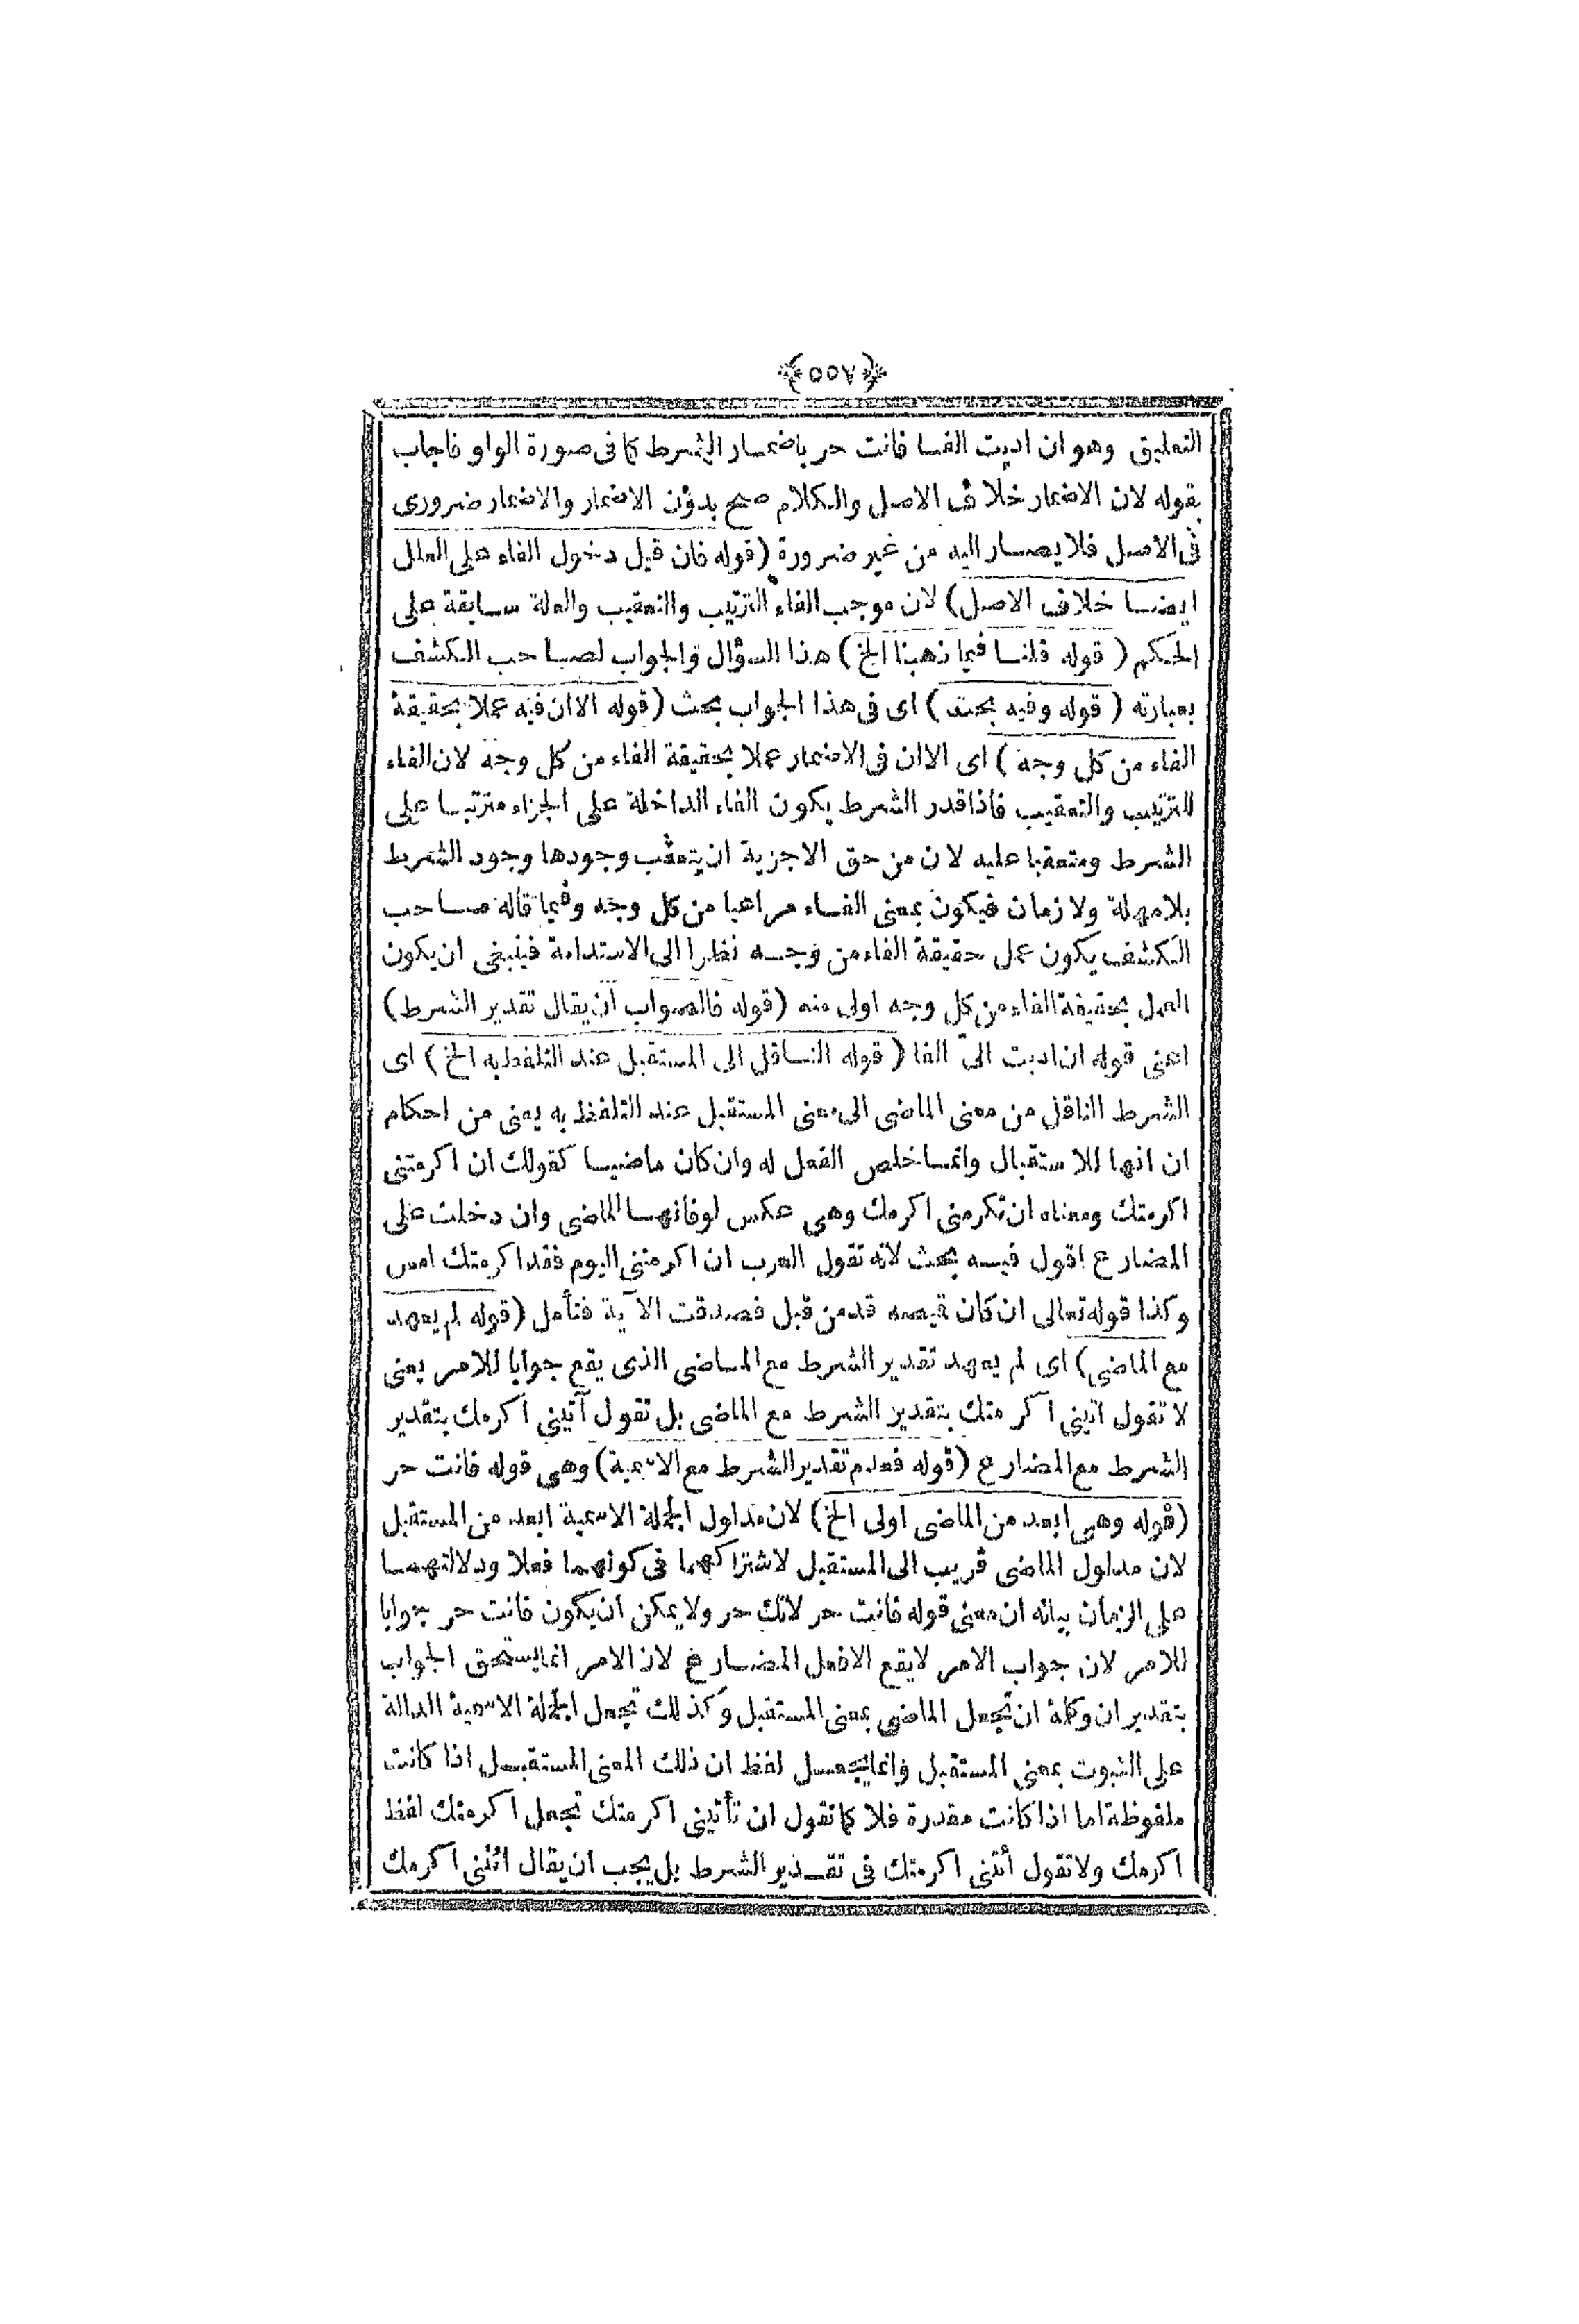 ﴿٥٥٧﴾
التعليق وهو ان اديت الفا فانت حر باضمار الشرط كما فى صورة الواو فاجاب
بقوله لان الاضمار خلاف الاصل والكلام صحيح بدون الاضمار والاضمار ضرورى
فى الاصل فلا يصار اليه من غير ضرورة (قوله فان قيل دخول الفاء على العلل
ايضا خلاف الاصل) لان موجب الفاء الترتيب والتعقيب والعلة سابقة على
الحكم (قوله قلنا فيما ذهبنا الخ) هذا السؤال والجواب لصاحب الكشف
بعبارته (قوله وفيه بحث) اى فى هذا الجواب بحث (قوله الا ان فيه عملا بحقيقة
الفاء من كل وجه) اى الا ان فى الاضمار عملا بحقيقة الفاء من كل وجه لان الفاء
للترتيب والتعقيب فاذا قدر الشرط يكون الفاء الداخلة على الجزاء مترتبا على
الشرط ومتعقبا عليه لان من حق الاجزية ان يتعقب وجودها وجود الشرط
بلا مهلة ولا زمان فيكون بمعنى الفاء مراعيا من كل وجه وفيما قاله صاحب
الكشف يكون عمل حقيقة الفاء من وجه نظرا الى الاستدامة فينبغى ان يكون
العمل بحقيقة الفاء من كل وجه اولى منه (قوله فالصواب ان يقال تقدير الشرط)
اعنى قوله ان اديت الىّ الفا (قوله الناقل الى المستقبل عند التلفظ به الخ) اى
الشرط الناقل من معنى الماضى الى معنى المستقبل عند التلفظ به يعنى من احكام
ان انها للاستقبال وانما خلص الفعل له وان كان ماضيا كقولك ان اكرمتنى
اكرمتك ومعناه ان تكرمنى اكرمك وهى عكس لو فانها للماضى وان دخلت على
المضارع اقول فيه بحث لانه تقول العرب ان اكرمتنى اليوم فقد اكرمتك امس
وكذا قوله تعالى ان كان قميصه قد من قبل فصدقت الآية فتأمل (قوله لم يعهد
مع الماضى) اى لم يعهد تقدير الشرط مع الماضى الذى يقع جوابا للامر يعنى
لا تقول اتينى اكرمتك بتقدير الشرط مع الماضى بل تقول آتينى اكرمك بتقدير
الشرط مع المضارع (قوله فعدم تقدير الشرط مع الاسمية) وهى قوله فانت حر
(قوله وهى ابعد من الماضى اولى الخ) لان مدلول الجملة الاسمية ابعد من المستقبل
لان مدلول الماضى قريب الى المستقبل لاشتراكهما فى كونهما فعلا ودلالتهما
على الزمان بيانه ان معنى قوله فانت حر لانك حر ولا يمكن ان يكون فانت حر جوابا
للامر لان جواب الامر لا يقع الا فعل المضارع لان الامر انما يستحق الجواب
بتقدير ان وكلمة ان تجعل الماضى بمعنى المستقبل وكذلك تجعل الجملة الاسمية الدالة
على الثبوت بمعنى المستقبل وانما يجعل لفظ ان ذلك المعنى المستقبل اذا كانت
ملفوظة اما اذا كانت مقدرة فلا كما تقول ان تأتينى اكرمتك تجعل اكرمتك لفظ
اكرمك ولا تقول أتنى اكرمتك فى تقدير الشرط بل يجب ان يقال ائتنى اكرمك